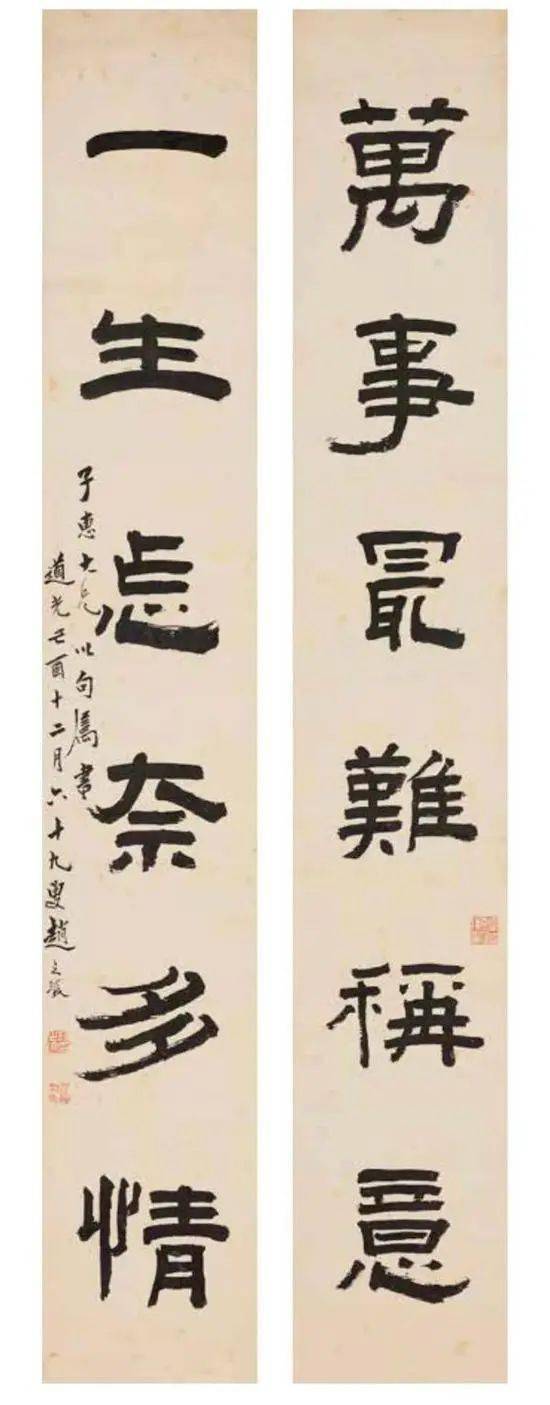 萬事冣難稱意
一生怎奈多情
子惠大兄以句屬書
道光己酉十二月六十九叟趙之琛